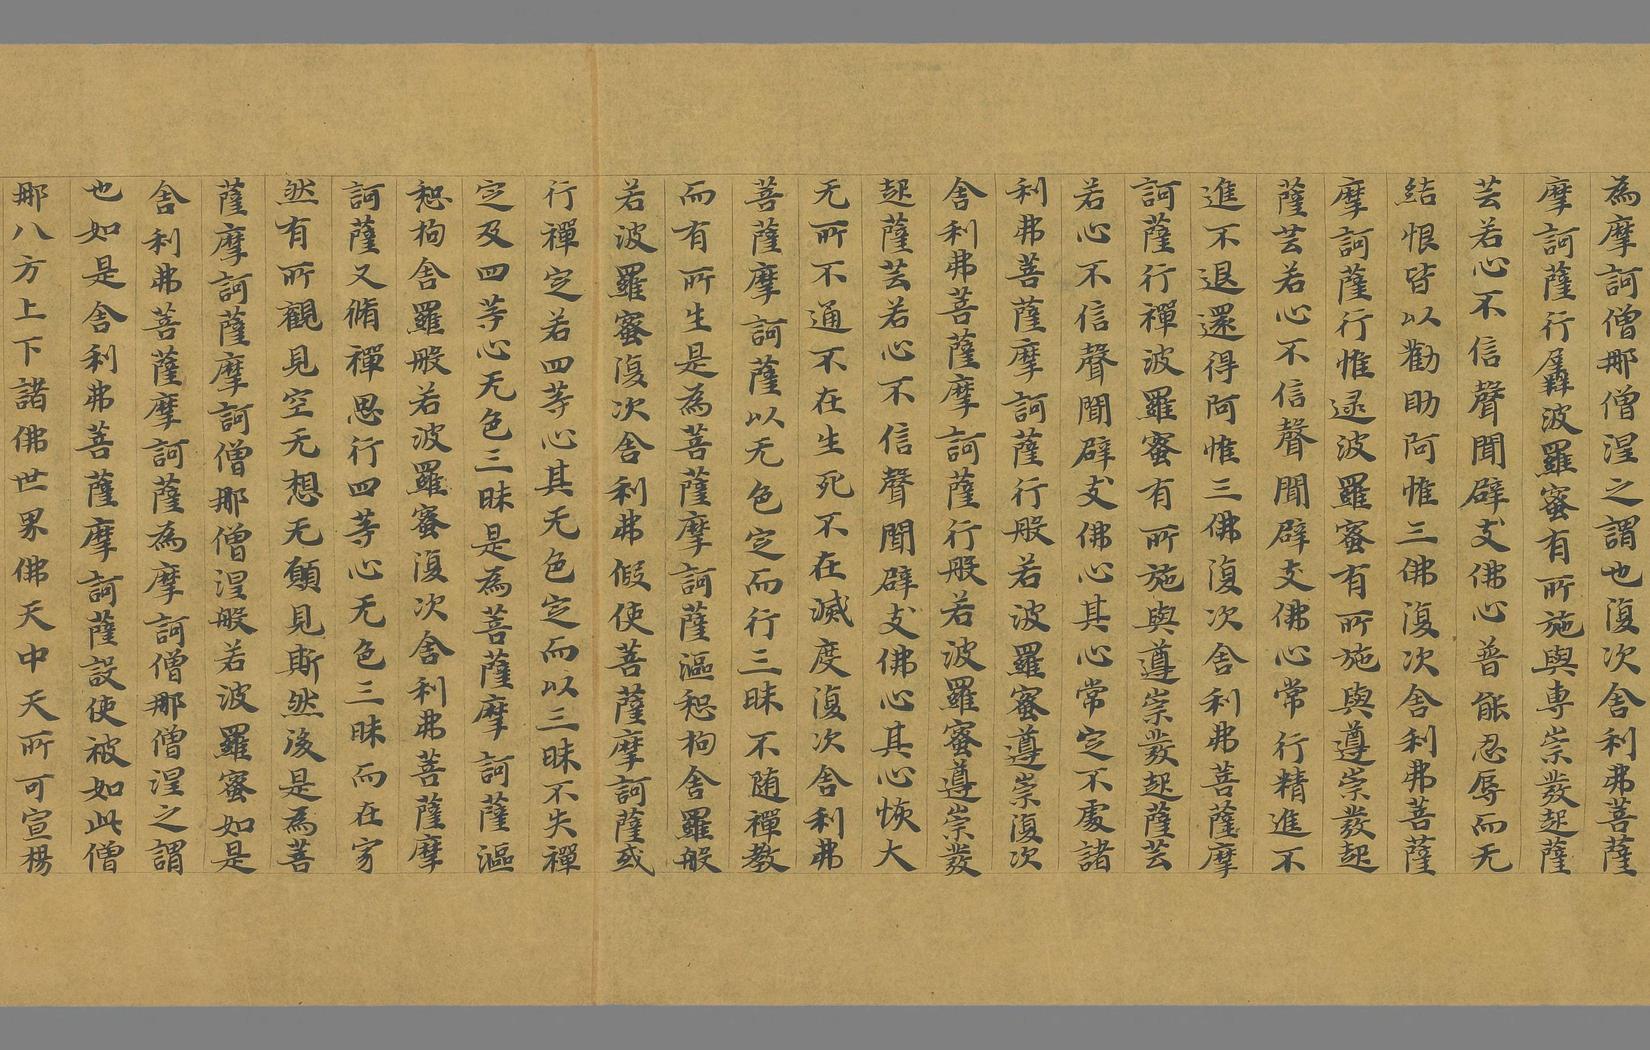 為摩訶僧那僧涅之謂也復次舍利弗菩薩
摩訶薩行羼波羅蜜有所施與専崇發起薩
芸若心不信聲聞辟支佛心普能忍辱而无
結恨皆以勸助阿惟三佛復次舍利弗菩薩
摩訶薩行惟逮波羅蜜有所施與遵崇發起
薩芸若心不信聲聞辟支佛心常行精進不
進不退還得阿惟三佛復次舍利弗菩薩摩
訶薩行禪波羅蜜有所施與遵崇發起薩芸
若心不信聲聞辟支佛心其心常定不處諸
利弗菩薩摩訶薩行般若波羅蜜遵崇復次
舍利弗菩薩摩訶薩行般若波羅蜜遵崇發
起薩芸若心不信聲聞辟支佛心其心恢大
无所不通不在生死不在滅度復次舍利弗
菩薩摩訶薩以无色定而行三昧不随禪教
而有所生是為菩薩摩訶薩漚惒拘舍羅般
若波羅蜜復次舍利弗假使菩薩摩訶薩或
行禪定若四等心其无色定而以三昧不失禪
定及四等心无色三昧是為菩薩摩訶薩漚
惒拘舍羅般若波羅蜜復次舍利弗菩薩摩
訶薩又脩禪思行四等心无色三昧而在家
然有所觀見空无想无願見斯然後是為菩
薩摩訶薩摩訶僧那僧涅般若波羅蜜如是
舍利弗菩薩摩訶薩為摩訶僧那僧涅之謂
也如是舍利弗菩薩摩訶薩設使被如此僧
那八方上下諸佛世界佛天中天所可宣楊